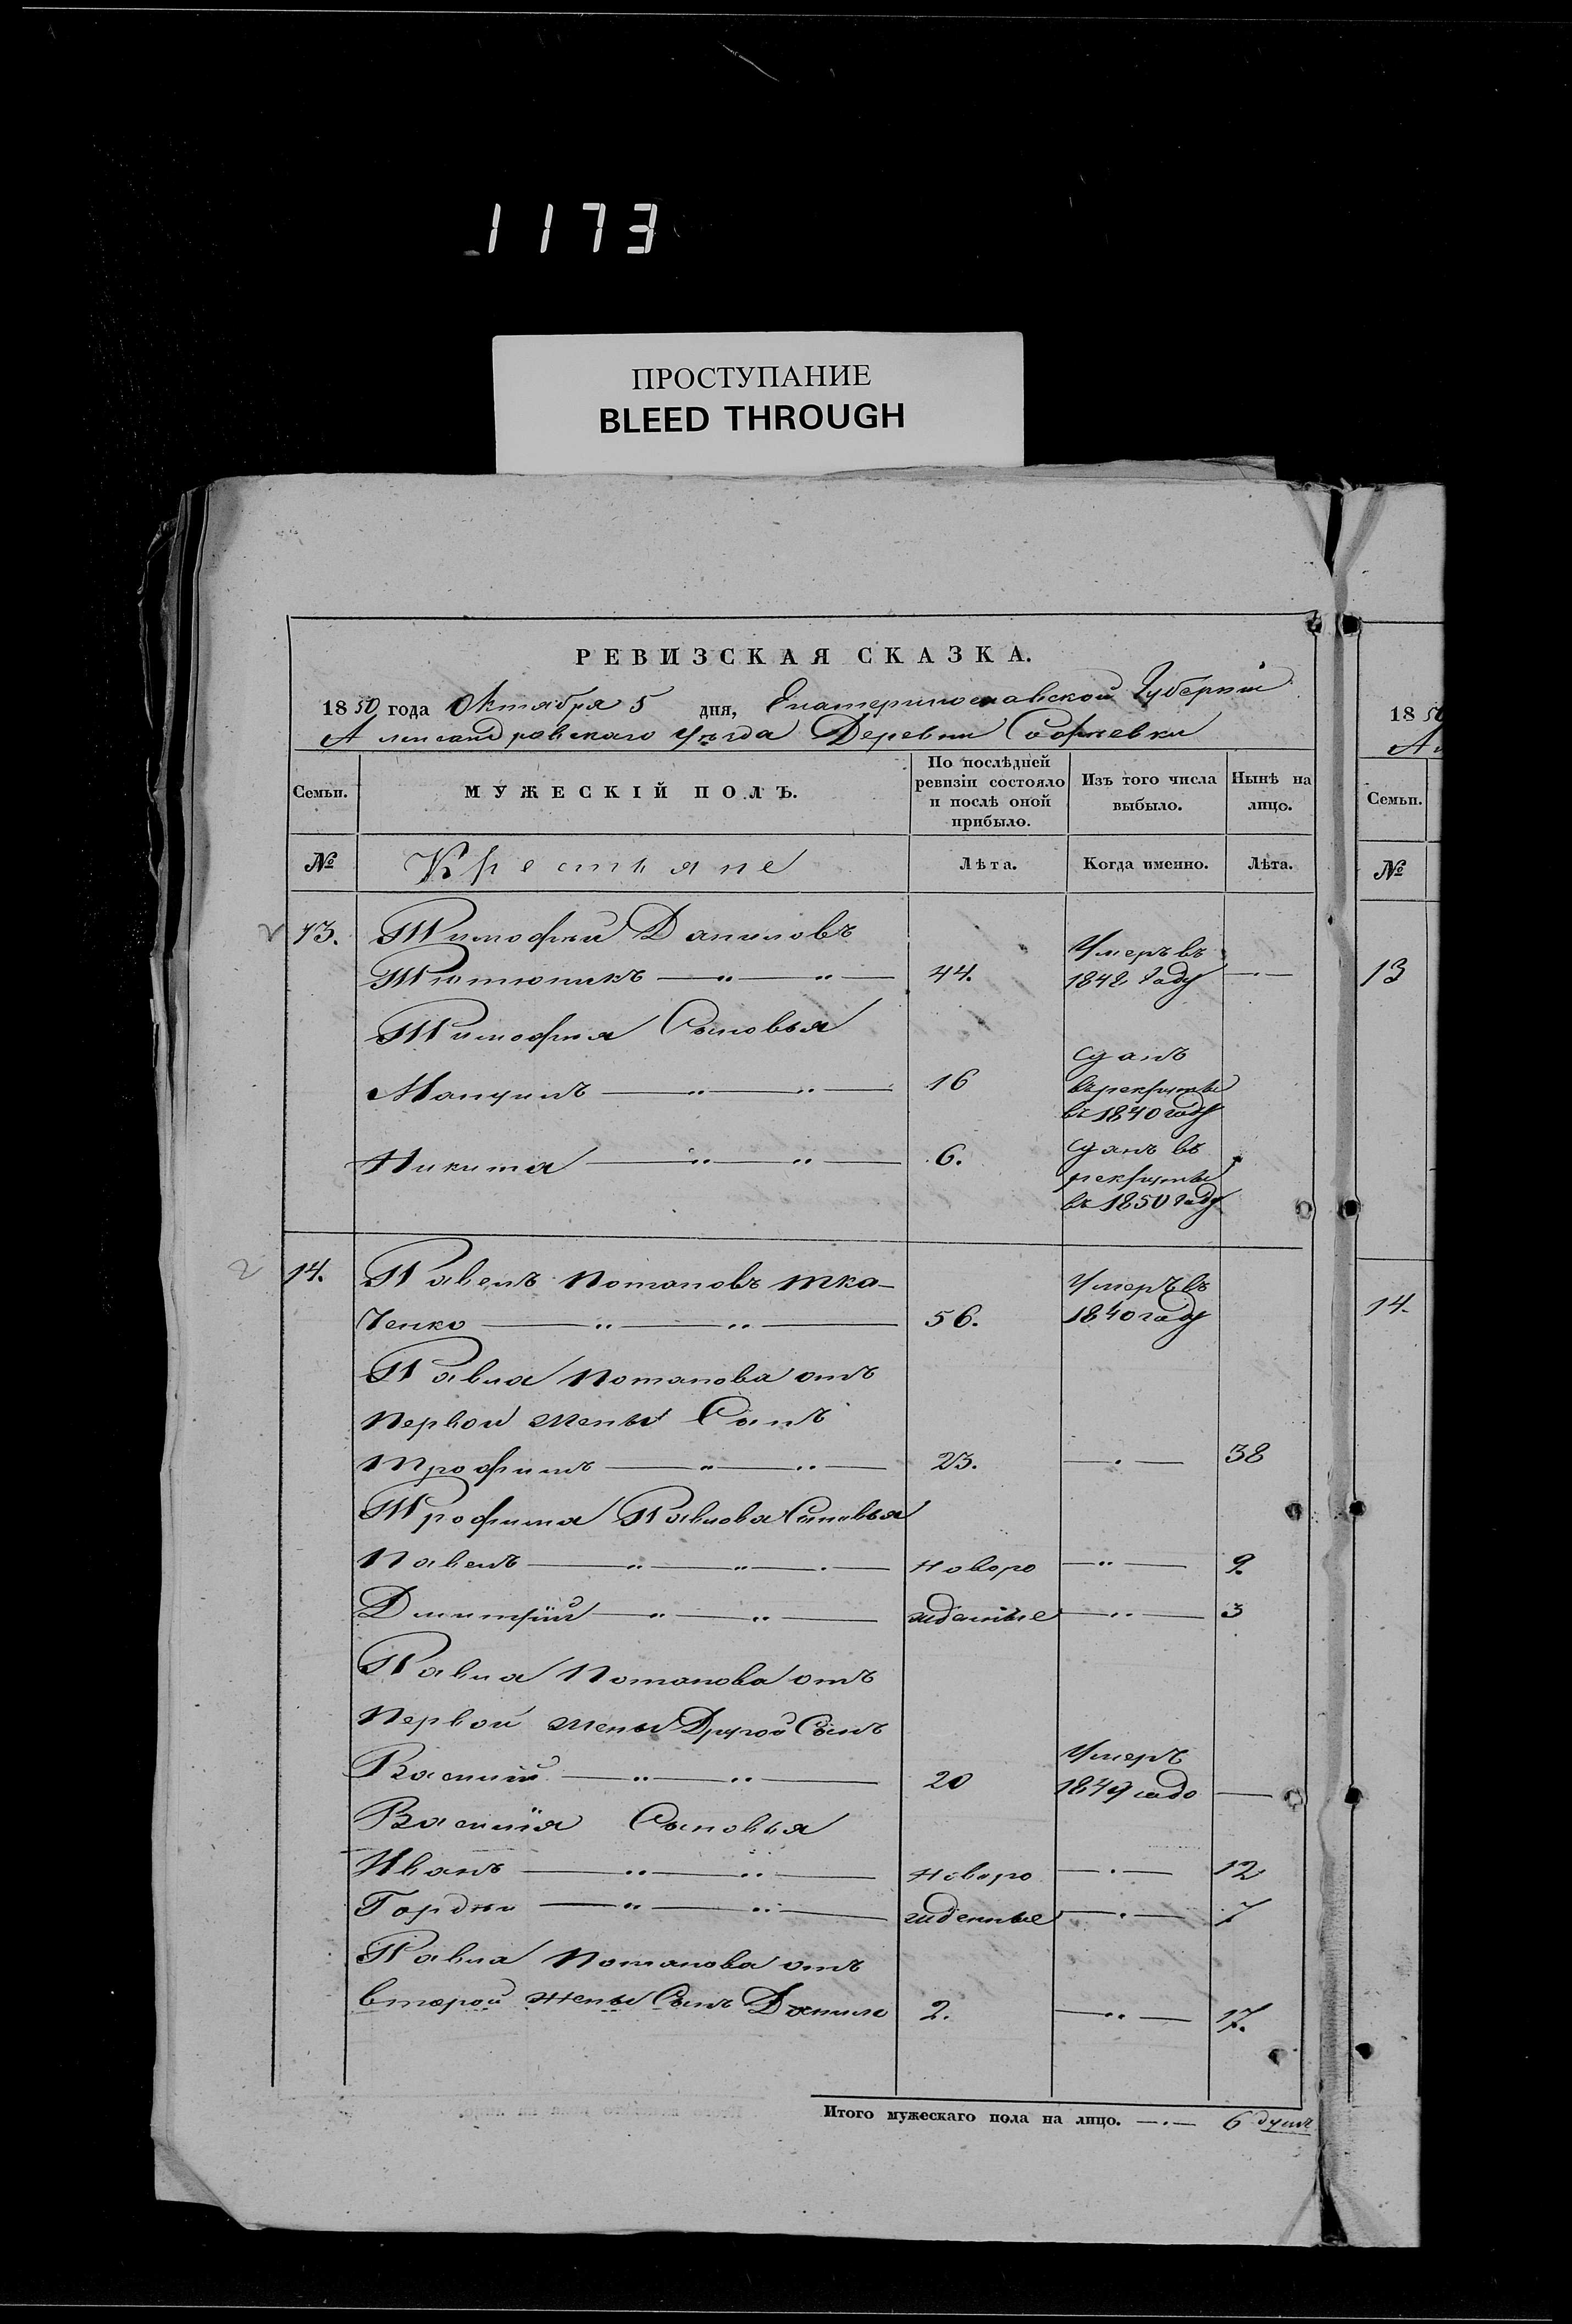 1173
ПРОСТУПАНИЕ
BLEED THROUGH
РЕВИЗСКАЯ СКАЗКА.
1850 года Октября 5 дня, Екатеринославской Губерніи
Александровскаго Уѣзда Деревни Софіевки
Семьи. МУЖЕСКІЙ ПОЛЪ. По послѣдней ревизіи состояло и послѣ оной прибыло. Изъ того числа выбыло. Нынѣ на лицо.
№ Крестьяне Лѣта. Когда именно. Лѣта.
13. Тимофѣй Даниловъ
Тютюникъ 44. Умеръ въ 1842 Году
Тимофѣя Сыновья
16 Сданъ въ рекруты въ 1840 году
Никита 6. Сданъ въ рекруты въ 1850 Году
14. Павелъ Потаповъ Тка-
ченко 56. Умеръ въ 1840 году
Павла Потапова отъ
первой жены Сынъ
Трофимъ 23. 38
Трофима Павлова Сыновья
Павелъ Новоро 9.
Дмитрій жденные 3
Павла Потапова отъ
Первой жены Другой Сынъ
Василій 20 Умеръ 1849 годо
Василія Сыновья
Иванъ Новоро 12
Гордѣй жденные 7
Павла Потапова отъ
второй жены Сынъ Данило 2. 17.
Итого мужескаго пола на лицо. 6 душъ
1850
Семьи.
№
13
14.